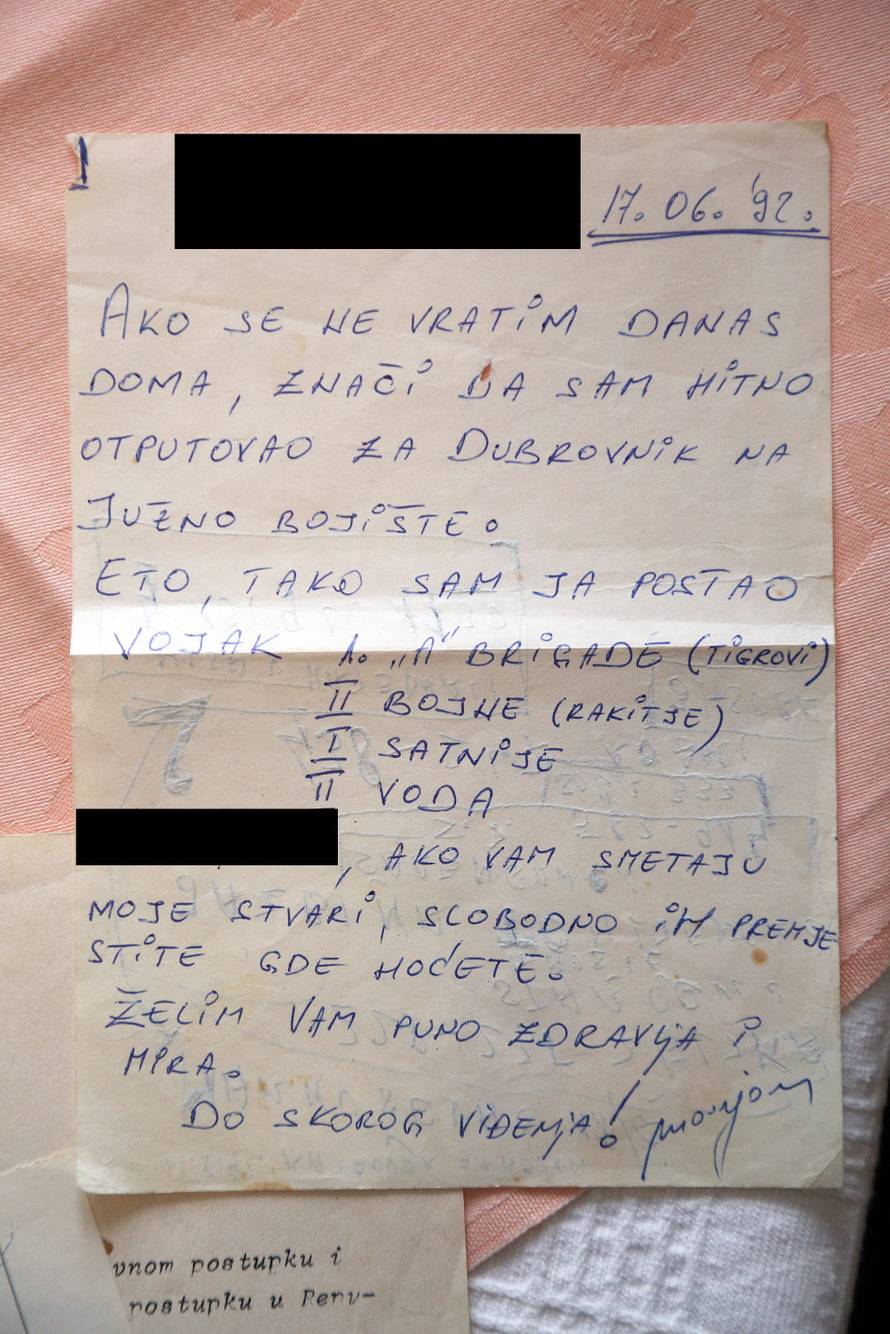 1
17. 06. '92.
AKO SE NE VRATIM DANAS
DOMA, ZNAČI DA SAM HITNO
OTPUTOVAO ZA DUBROVNIK NA
JUŽNO BOJIŠTE.
ETO, TAKO SAM JA POSTAO
VOJAK 1. „A" BRIGADE (TIGROVI)
II BOJNE (RAKITJE)
I SATNIJE
II VODA
, AKO VAM SMETAJU
MOJE STVARI, SLOBODNO IH PREMJE
STITE GDE HOĆETE.
ŽELIM VAM PUNO ZDRAVLJA I
MIRA.
DO SKOROG VIĐENJA!
vnom postupku i
postupku u Perv-